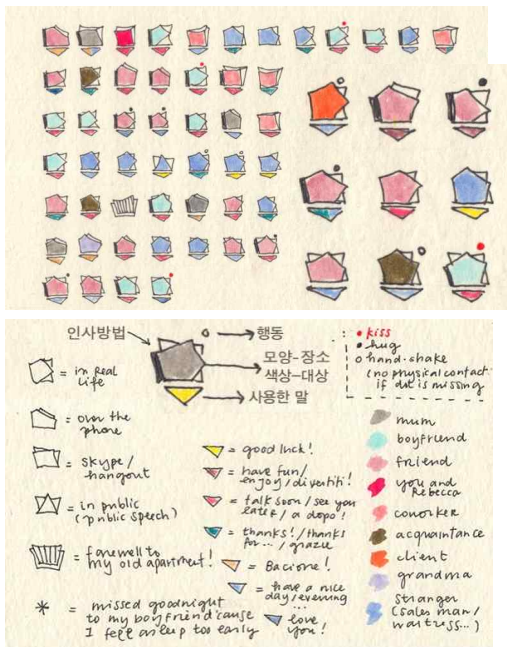 인사방법
행동
모양-장소
색상-대상
사용한 말
• kiss
• hug
o hand-shake
(no physical contact
if dot is missing
= in real
life
= over the
phone
= skype/
hangout
= in public
(public speech)
= farewell to
my old apartment!
* = missed goodnight
to my boyfriend 'cause
I fell asleep too early
= good luck!
= have fun/
enjoy/divertiti!
= talk soon/see you
later/a dopo!
= thanks!/thanks
for.../grazie
= Bacione!
= have a nice
day/evening
...
= love
you!
mum
boyfriend
friend
you and
Rebecca
coworker
acquaintance
client
grandma
stranger
(sales man/
waitress...)